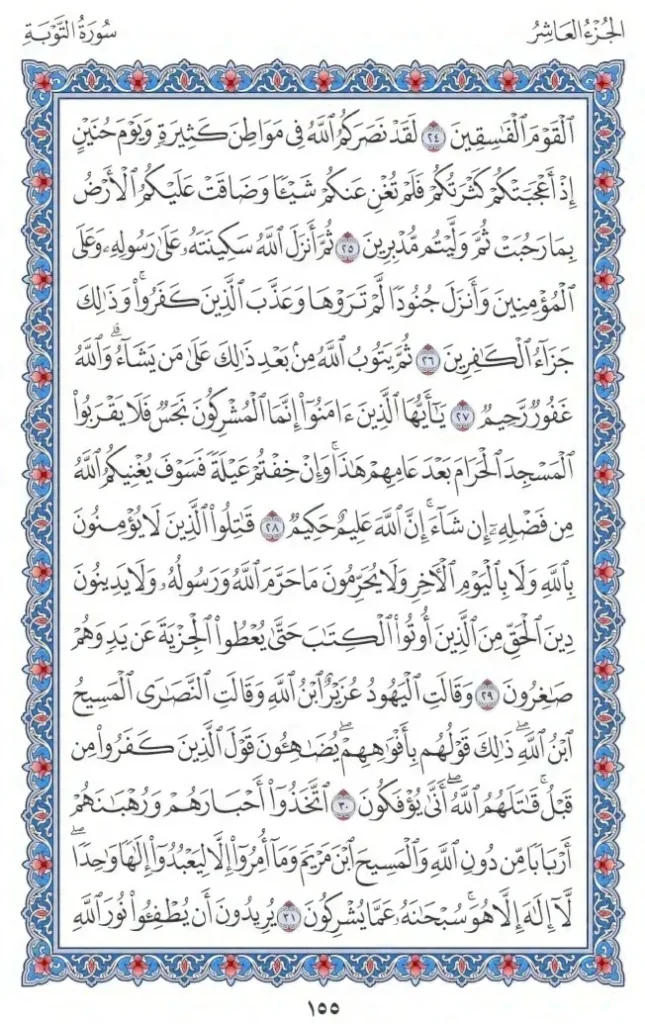 الجُزْءُ العَاشِرُ
سُورَةُ التَّوْبَةِ
ٱلْقَوْمَ ٱلْفَٰسِقِينَ ٢٤ لَقَدْ نَصَرَكُمُ ٱللَّهُ فِى مَوَاطِنَ كَثِيرَةٍ وَيَوْمَ حُنَيْنٍ
إِذْ أَعْجَبَتْكُمْ كَثْرَتُكُمْ فَلَمْ تُغْنِ عَنكُمْ شَيْـًٔا وَضَاقَتْ عَلَيْكُمُ ٱلْأَرْضُ
بِمَا رَحُبَتْ ثُمَّ وَلَّيْتُم مُّدْبِرِينَ ٢٥ ثُمَّ أَنزَلَ ٱللَّهُ سَكِينَتَهُۥ عَلَىٰ رَسُولِهِۦ وَعَلَى
ٱلْمُؤْمِنِينَ وَأَنزَلَ جُنُودًا لَّمْ تَرَوْهَا وَعَذَّبَ ٱلَّذِينَ كَفَرُوا۟ ۚ وَذَٰلِكَ
جَزَآءُ ٱلْكَٰفِرِينَ ٢٦ ثُمَّ يَتُوبُ ٱللَّهُ مِنۢ بَعْدِ ذَٰلِكَ عَلَىٰ مَن يَشَآءُ ۗ وَٱللَّهُ
غَفُورٌ رَّحِيمٌ ٢٧ يَٰٓأَيُّهَا ٱلَّذِينَ ءَامَنُوٓا۟ إِنَّمَا ٱلْمُشْرِكُونَ نَجَسٌ فَلَا يَقْرَبُوا۟
ٱلْمَسْجِدَ ٱلْحَرَامَ بَعْدَ عَامِهِمْ هَٰذَا ۚ وَإِنْ خِفْتُمْ عَيْلَةً فَسَوْفَ يُغْنِيكُمُ ٱللَّهُ
مِن فَضْلِهِۦٓ إِن شَآءَ ۚ إِنَّ ٱللَّهَ عَلِيمٌ حَكِيمٌ ٢٨ قَٰتِلُوا۟ ٱلَّذِينَ لَا يُؤْمِنُونَ
بِٱللَّهِ وَلَا بِٱلْيَوْمِ ٱلْـَٔاخِرِ وَلَا يُحَرِّمُونَ مَا حَرَّمَ ٱللَّهُ وَرَسُولُهُۥ وَلَا يَدِينُونَ
دِينَ ٱلْحَقِّ مِنَ ٱلَّذِينَ أُوتُوا۟ ٱلْكِتَٰبَ حَتَّىٰ يُعْطُوا۟ ٱلْجِزْيَةَ عَن يَدٍ وَهُمْ
صَٰغِرُونَ ٢٩ وَقَالَتِ ٱلْيَهُودُ عُزَيْرٌ ٱبْنُ ٱللَّهِ وَقَالَتِ ٱلنَّصَٰرَى ٱلْمَسِيحُ
ٱبْنُ ٱللَّهِ ۖ ذَٰلِكَ قَوْلُهُم بِأَفْوَٰهِهِمْ ۖ يُضَٰهِـُٔونَ قَوْلَ ٱلَّذِينَ كَفَرُوا۟ مِن
قَبْلُ ۚ قَٰتَلَهُمُ ٱللَّهُ ۖ أَنَّىٰ يُؤْفَكُونَ ٣٠ ٱتَّخَذُوٓا۟ أَحْبَارَهُمْ وَرُهْبَٰنَهُمْ
أَرْبَابًا مِّن دُونِ ٱللَّهِ وَٱلْمَسِيحَ ٱبْنَ مَرْيَمَ وَمَآ أُمِرُوٓا۟ إِلَّا لِيَعْبُدُوٓا۟ إِلَٰهًا وَٰحِدًا ۖ
لَّآ إِلَٰهَ إِلَّا هُوَ ۚ سُبْحَٰنَهُۥ عَمَّا يُشْرِكُونَ ٣١ يُرِيدُونَ أَن يُطْفِـُٔوا۟ نُورَ ٱللَّهِ
١٥٥